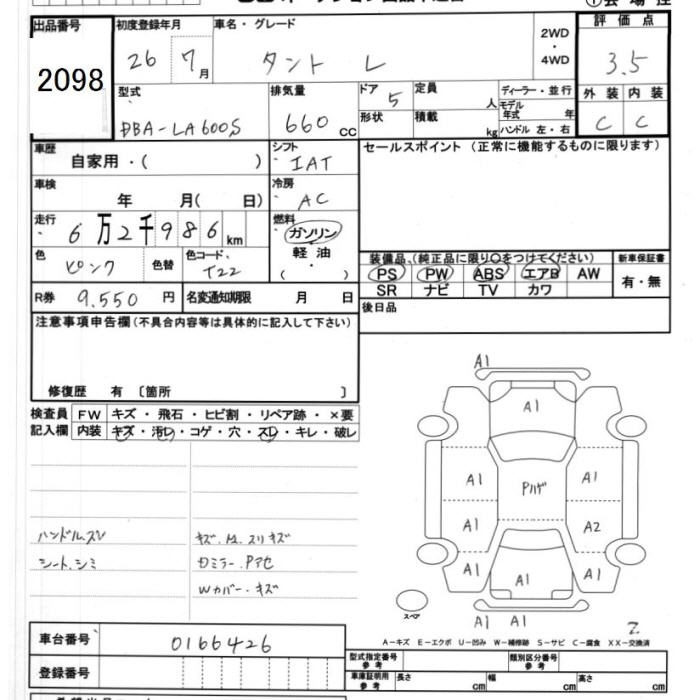 出品番号 初度登録年月 車名・グレード 2WD・4WD 評価点
2098 26 7月 タント L 3.5
型式 排気量 ドア 定員 ディーラー・並行 外装 内装
DBA-LA600S 660cc 5 人 モデル年式 年 C C
形状 積載 kg ハンドル 左・右
車歴 シフト セールスポイント(正常に機能するものに限ります)
自家用・( ) IAT
車検 冷房
年 月( 日) AC
走行 燃料
6万2千986km ガソリン
軽油
・
( )
色 色替 色コード
ピンク T22
装備品、(純正品に限り○をつけてください) 新車保証書
PS PW ABS エアB AW 有・無
SR ナビ TV カワ
R券 9.550円 名変通知期限 月 日 後日品
注意事項申告欄(不具合内容等は具体的に記入して下さい)
修復歴 有〔箇所 〕
検査員 FW キズ・飛石・ヒビ割・リペア跡・×要
記入欄 内装 キズ・汚レ・コゲ・穴・スレ・キレ・破レ
ハンドルスレ キズ.M.スリキズ
シート.シミ Gミラー.Pアセ
Wカバー.キズ
A1
A1
A1 Pハゲ A1
A1 A2
A1 A1 A1
A1 A1
スペア
2.
A-キズ E-エクボ U-凹み W-補修跡 S-サビ C-腐食 XX-交換済
車台番号 0166426
型式指定番号 参考 類別区分番号 参考
登録番号
車庫証明用 参考 長さ cm 幅 cm 高さ cm